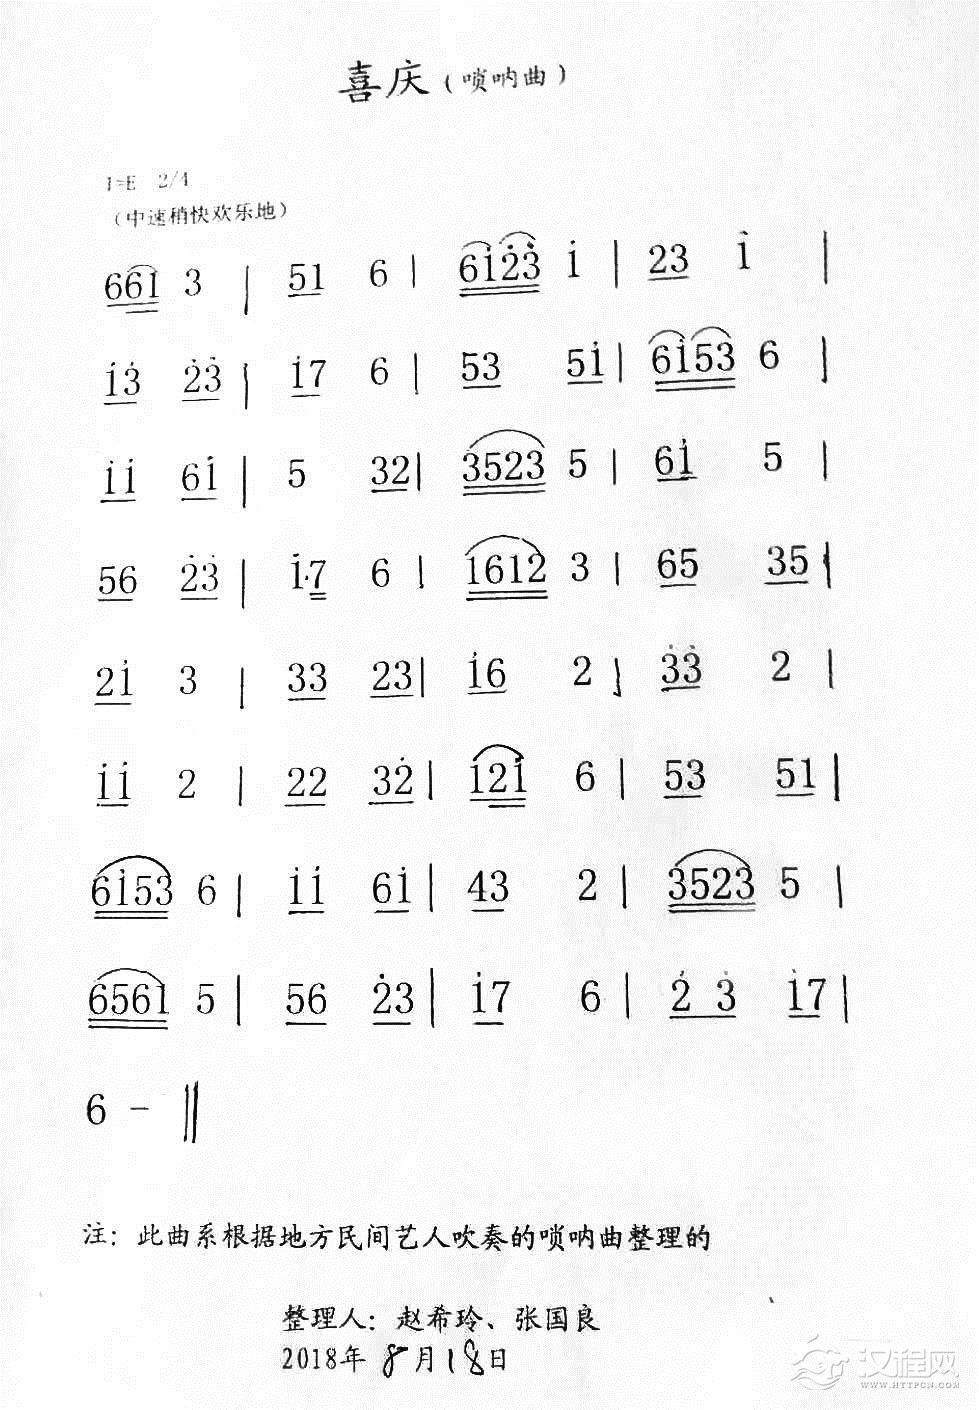 喜庆（唢呐曲）
1=E 2/4
（中速稍快欢乐地）
661 3 | 51 6 | 6i̇2̇3̇ i̇ | 23 i̇ |
i̇3̇ 2̇3̇ | i̇7 6 | 53 5i̇ | 6i̇53 6 |
i̇i̇ 6i̇ | 5 32 | 3523 5 | 6i̇ 5 |
56 2̇3̇ | i̇·7 6 | 1612 3 | 65 35 |
2i̇ 3 | 33 23 | i̇6 2 | 3̇3̇ 2 |
i̇i̇ 2 | 22 32̇ | i̇2i̇ 6 | 53 51 |
6i̇53 6 | i̇i̇ 6i̇ | 43 2 | 3523 5 |
6561 5 | 56 2̇3 | i̇7 6 | 2̇ 3̇ i̇7 |
6 - ‖
注：此曲系根据地方民间艺人吹奏的唢呐曲整理的
整理人：赵希玲、张国良
2018年8月18日
汉程网
WWW.HTTPCN.COM